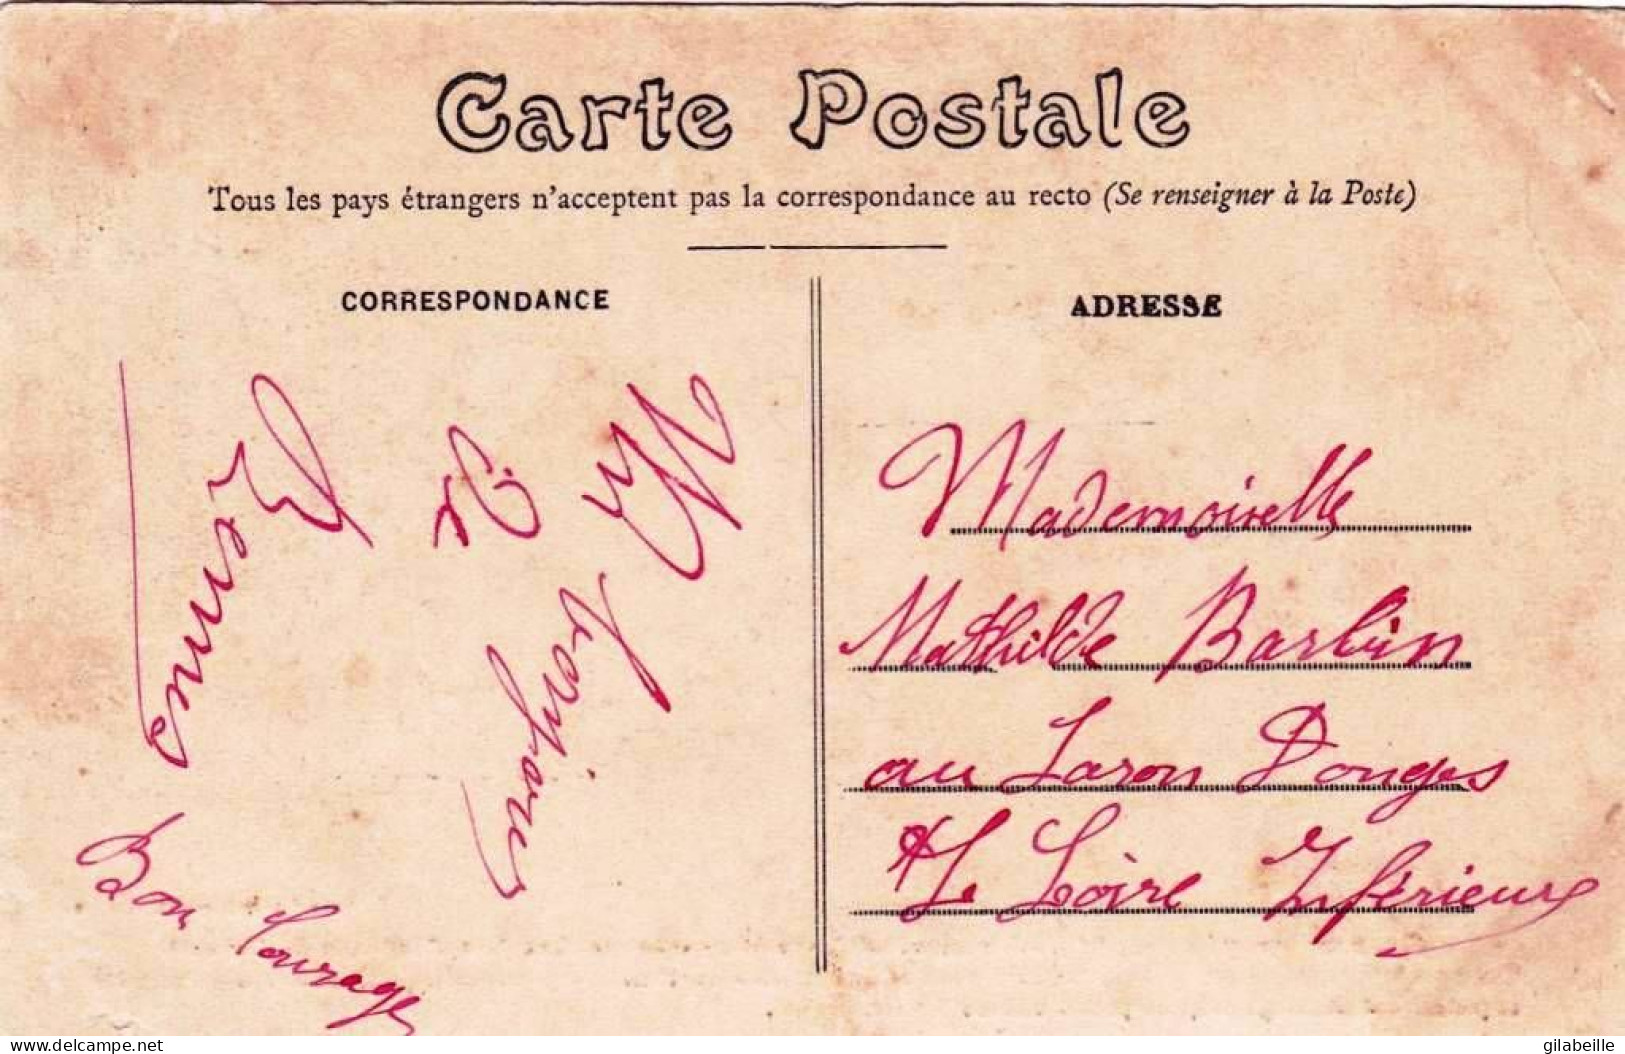 Carte Postale
Tous les pays étrangers n'acceptent pas la correspondance au recto (Se renseigner à la Poste)
CORRESPONDANCE
ADRESSE
Un
de
toujours
Bon Courage
Mademoiselle
Mathilde Barbin
au Laron Donges
Loire Inférieure
delcampe.net
gilabeille